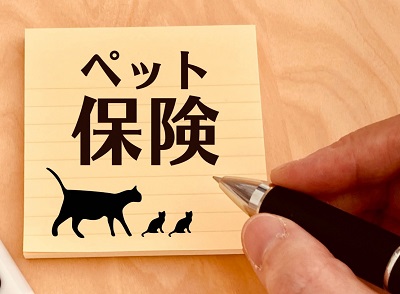 ペット
保険